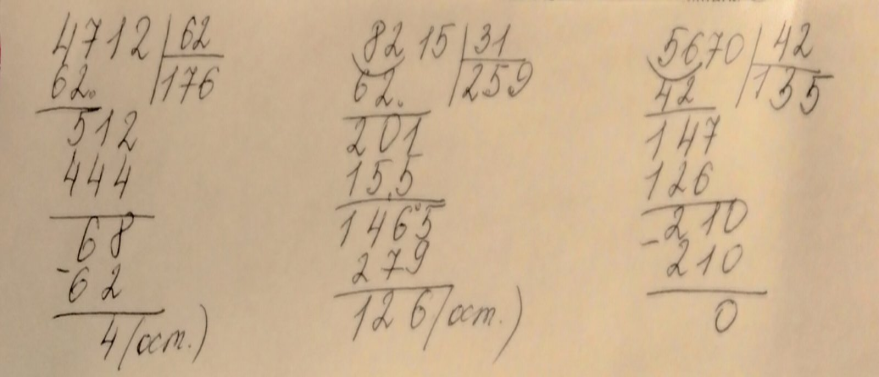 4712 62
62. 176
512
444
68
-62
4 (ост.)
8215 31
62. 259
201
155
1465
279
126 (ост.)
5670 42
42 135
147
126
-210
210
0